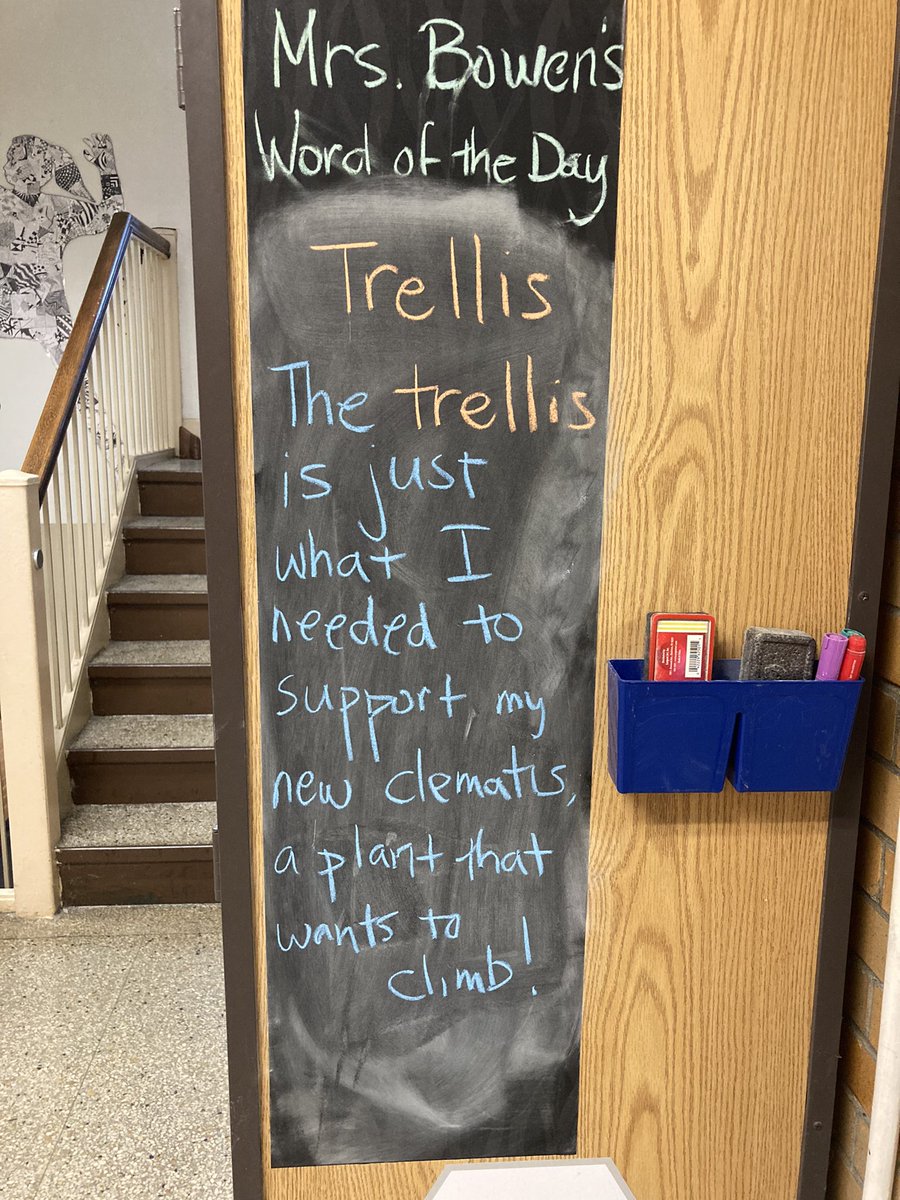 Mrs. Bowen's
Word of the Day
Trellis
The trellis
is just
what I
needed to
support my
new clematis,
a plant that
wants to
climb!